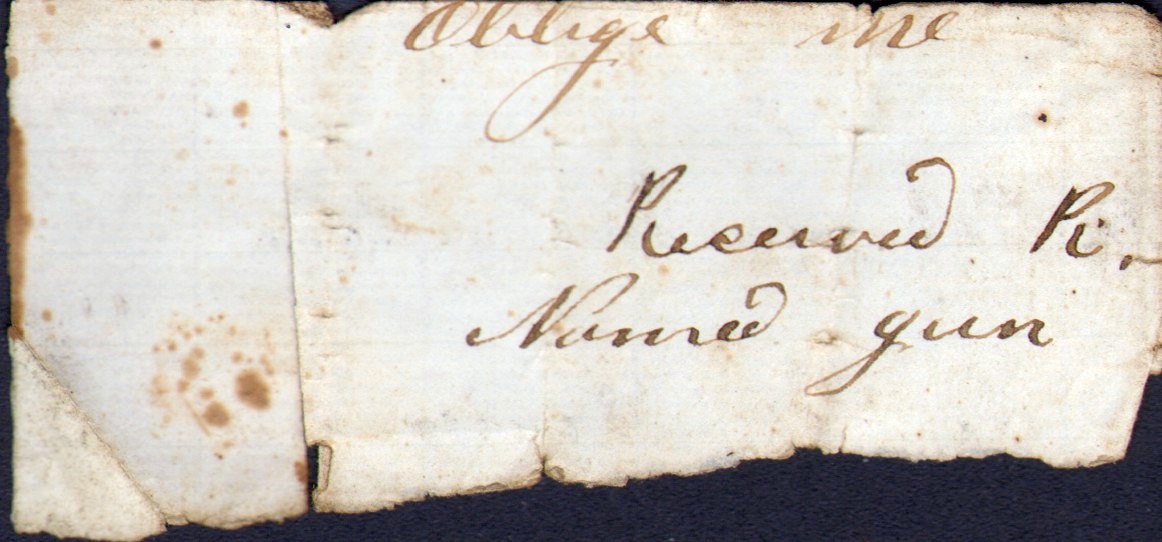 Oblige me
Received R.
Named gun